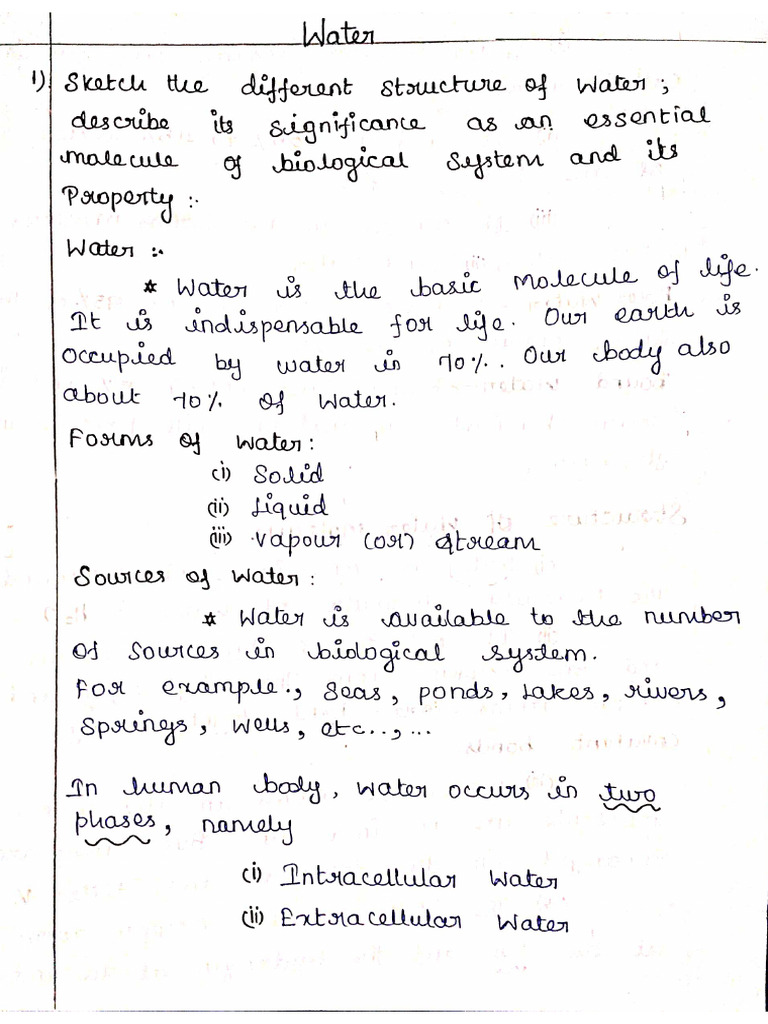 Water
1) Sketch the different structure of Water ;
describe its significance as an essential
molecule of biological System and its
Property :-
Water :-
* Water is the basic molecule of life.
It is indispensable for life. Our earth is
occupied by water in 70%. Our body also
about 70% of water.
Forms of water :
(i) Solid
(ii) Liquid
(iii) Vapour (or) Stream
Sources of Water :
* Water is available to the number
of sources in biological system.
For example., Seas, ponds, Lakes, rivers,
Springs, Wells, etc..,...
In human body, water occurs in two
phases, namely
(i) Intracellular Water
(ii) Extracellular Water